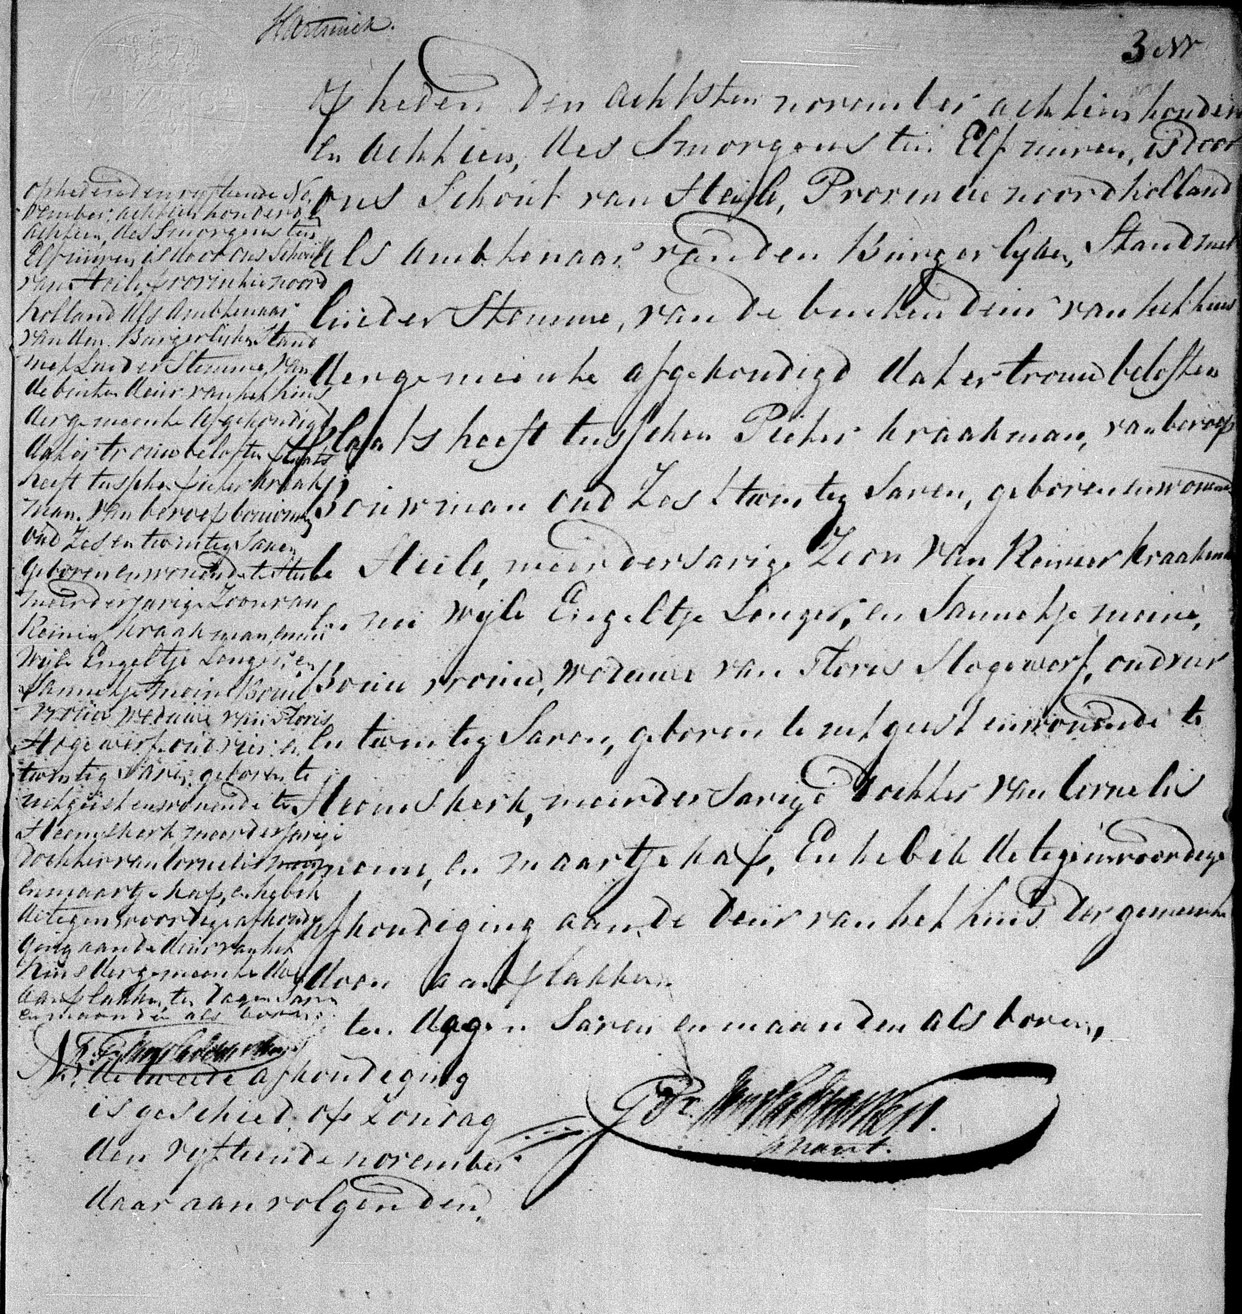 3 NV
Op heden den achtsten november achtien honderd
en achtien, des Smorgens ten Elf uuren, is door
ons Schout van Heile, Provincie noordholland
als ambtenaar van den Burgerlyken Stand met
luider Stemme, van de buiten deur van het huis
der gemeente afgekondigd dat er trouwbeloften
plaats heeft tusschen Pieter kraakman, van beroep
Bouwman oud Zes & twintig Jaren, geboren en wonende
te Heile, meerderjarige Zoon van Reinier kraakman
en nu wyle Engeltje Longer, en Jannetje moine,
Bouw vrouw, weduwe van Floris Hogewerf, oud vier
en twintig Jaren, geboren te uitgeest en wonende te
Heemskerk, meerderjarige dochter van Cornelis
moine, en maartje kaf, En heb ik de tegenwoordige
afkondiging aan de deur van het huis der gemeente
doen aanplakken
ten dagen Jaren en maanden als boven,
op heden den vyftiende No
vember, achtien honderd
achtien, des Smorgens ten
Elf uuren is door ons Schout
van Heile, provincie noord
holland als Ambtenaar
van den Burgerlyken Stand
met Luider Stemme, van
de buiten deur van het huis
der gemeente afgekondigd
dat er trouwbeloften plaats
heeft tusschen pieter kraak
man, van beroep bouwman
oud Zes en twintig Jaren
geboren en wonende te Heile
meerderjarige Zoon van
Reinier kraakman, en nu
wyle Engeltje Longer, en
Jannetje moine Bouw
vrouw weduwe van Floris
Hogewerf oud vier en
twintig Jaren geboren te
uitgeest en wonende te
Heemskerk meerderjarige
dochter van Cornelis moine
en maartje kaf, en heb ik
de tegenwoordige afkondi
ging aan de deur van het
huis der gemeente doen
aanplakken, ten dagen Jaren
en maanden als boven
de tweede afkondeging
is geschied op Zondag
den vyftiende november
daar aan volgenden,